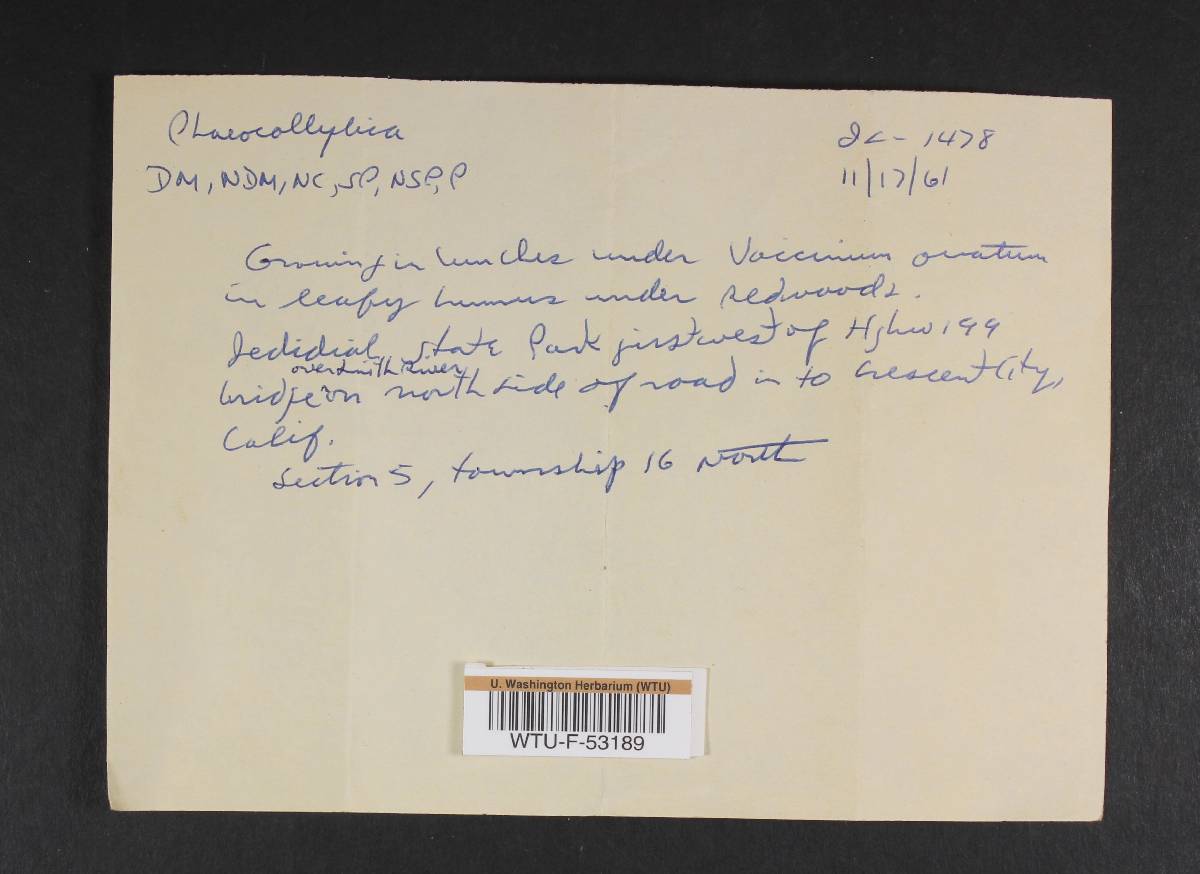 Phaeocollybia
DM, NDM, NC, SP, NSP, P
Jc - 1478
11/17/61
Growing in bunches under Vaccinium ovatum
in leafy humus under redwoods.
Jedidiah State Park just west of Hghw 199
over Smith River
bridge on north side of road in to Crescent City,
Calif.
Section 5, township 16 North
U. Washington Herbarium (WTU)
WTU-F-53189